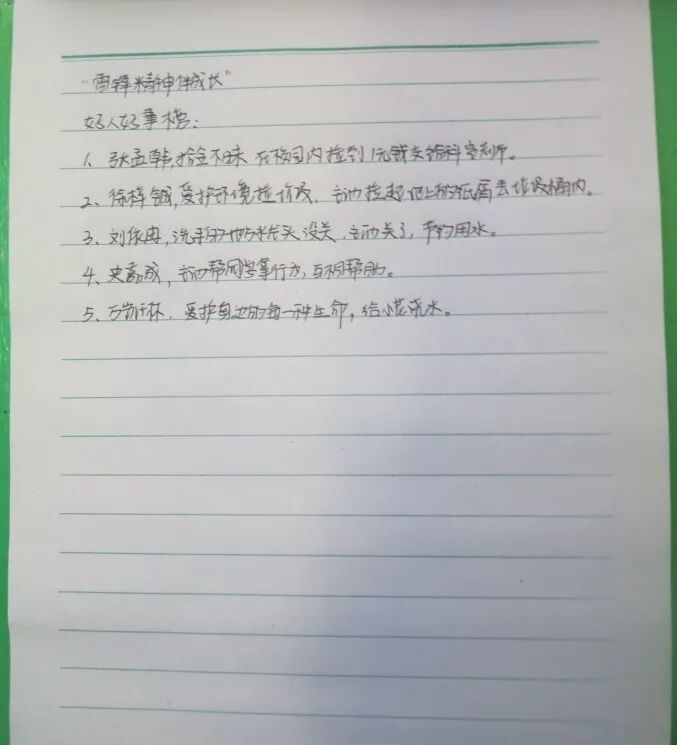 “雷锋精神伴成长”
好人好事榜：
1、张孟韩，拾金不昧 在校园内捡到1元钱交给科室老师。
2、徐梓钡，爱护环境捡垃圾，主动捡起地上的纸屑丢垃圾桶内。
3、刘依冉，洗手的地方水龙头没关，主动关了，节约用水。
4、史嘉成，主动帮同学拿行为，互相帮助。
5、万怀，爱护身边的每一种生命，给小花浇水。